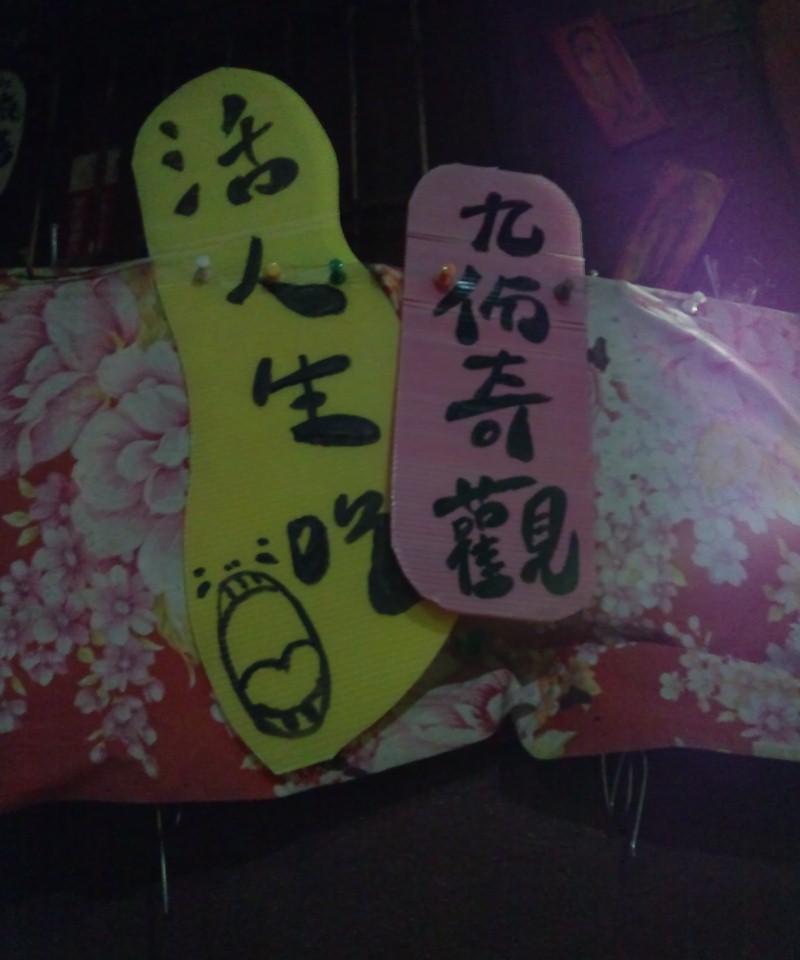 活人生吃
九份奇觀